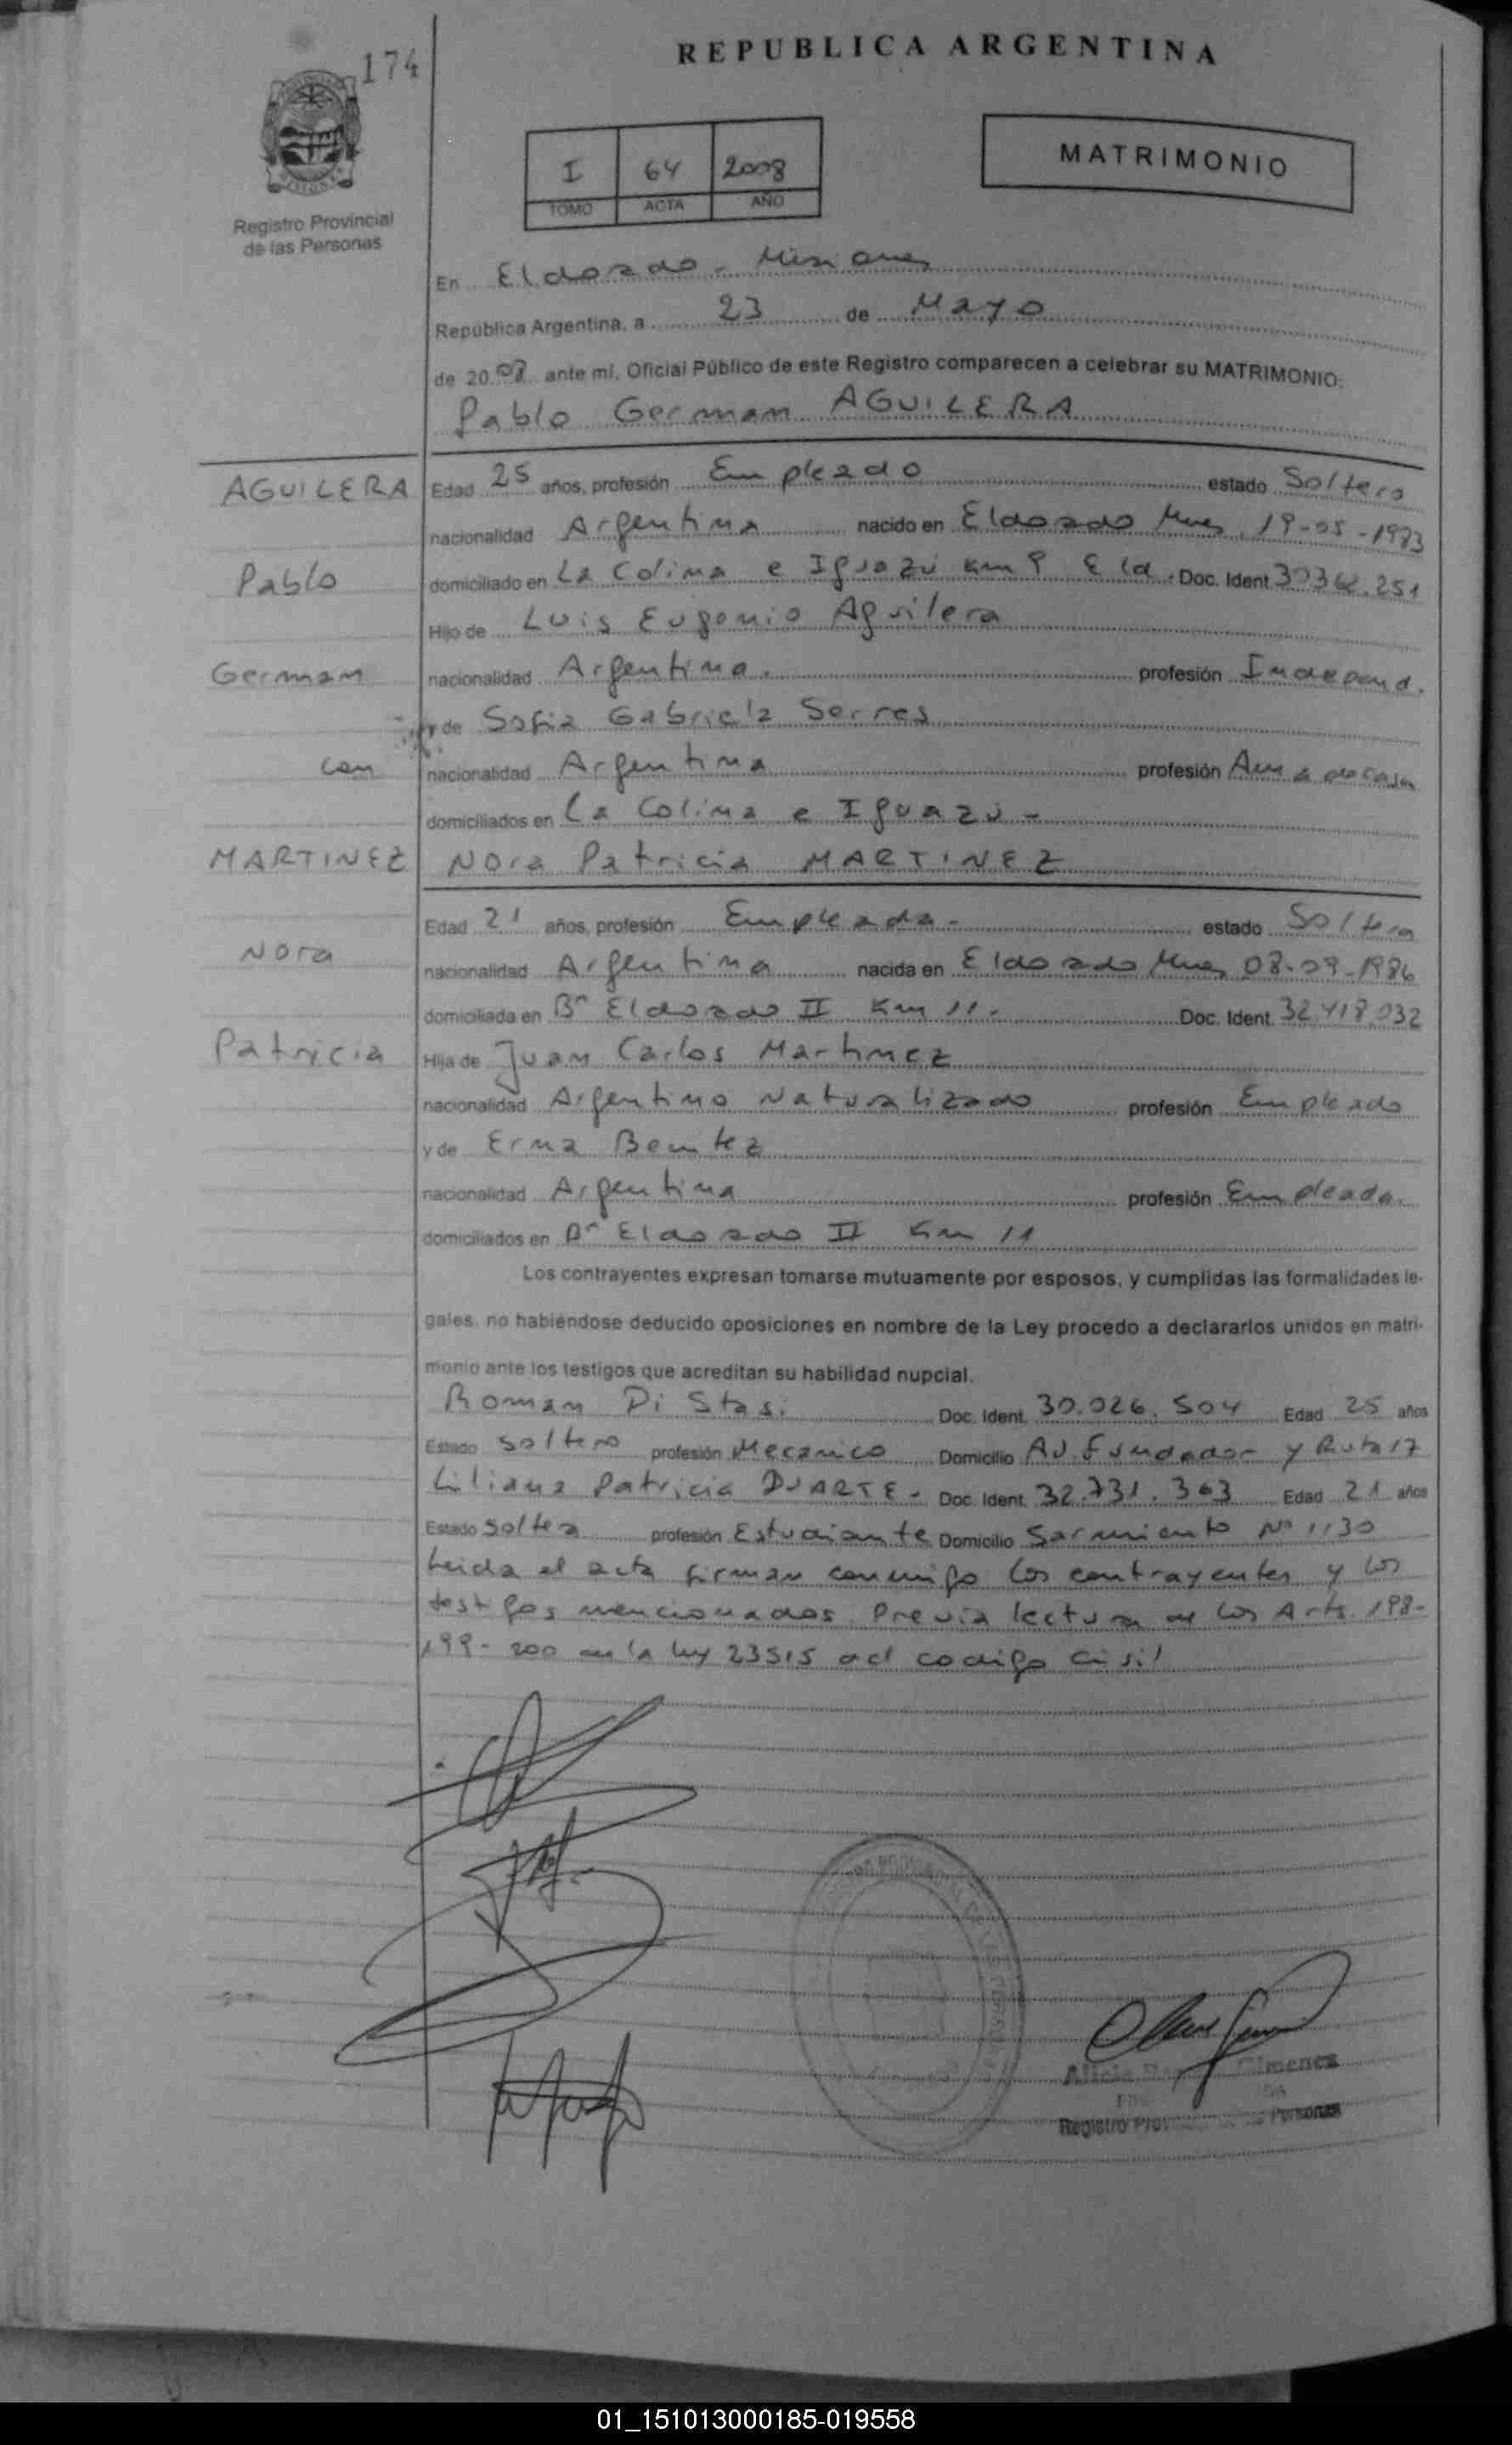 174
REPUBLICA ARGENTINA
I 64 2008
TOMO ACTA AÑO
MATRIMONIO
Registro Provincial
de las Personas
En Eldorado - Misiones
República Argentina, a 23 de Mayo
de 2008 ante mí, Oficial Público de este Registro comparecen a celebrar su MATRIMONIO:
Pablo German AGUILERA
AGUILERA
Edad 25 años, profesión Empleado estado Soltero
nacionalidad Argentina nacido en Eldorado Mnes, 19-05-1983
Pablo
domiciliado en La Colina e Iguazú Km 9 Eld. Doc. Ident. 30362.251
Hijo de Luis Eugenio Aguilera
German
nacionalidad Argentina. profesión Independ.
y de Sofia Gabriela Serres
con
nacionalidad Argentina profesión Ama de casa
domiciliados en La Colina e Iguazú -
MARTINEZ
Nora Patricia MARTINEZ
Edad 21 años, profesión Empleada - estado Soltera
Nora
nacionalidad Argentina nacida en Eldorado Mnes 08-09-1986
domiciliada en Bº Eldorado II Km 11. Doc. Ident. 32.418.032
Patricia
Hija de Juan Carlos Martinez
nacionalidad Argentino Naturalizado profesión Empleado
y de Erma Benitez
nacionalidad Argentina profesión Empleada.
domiciliados en Bº Eldorado II Km 11
Los contrayentes expresan tomarse mutuamente por esposos, y cumplidas las formalidades le-
gales, no habiéndose deducido oposiciones en nombre de la Ley procedo a declararlos unidos en matri-
monio ante los testigos que acreditan su habilidad nupcial.
Roman Di Stasi Doc. Ident. 30.026.504 Edad 25 años
Estado soltero profesión Mecanico Domicilio Av. Fundador y Ruta 17
Liliana Patricia DUARTE - Doc. Ident. 32.731.363 Edad 21 años
Estado soltera profesión Estudiante Domicilio Sarmiento Nº 1130
Leida el acta firman conmigo los contrayentes y los
testigos mencionados. Previa lectura de los Arts. 198-
199-200 de la ley 23515 del codigo Civil
Alicia Gimenez
Registro Personas
01_151013000185-019558